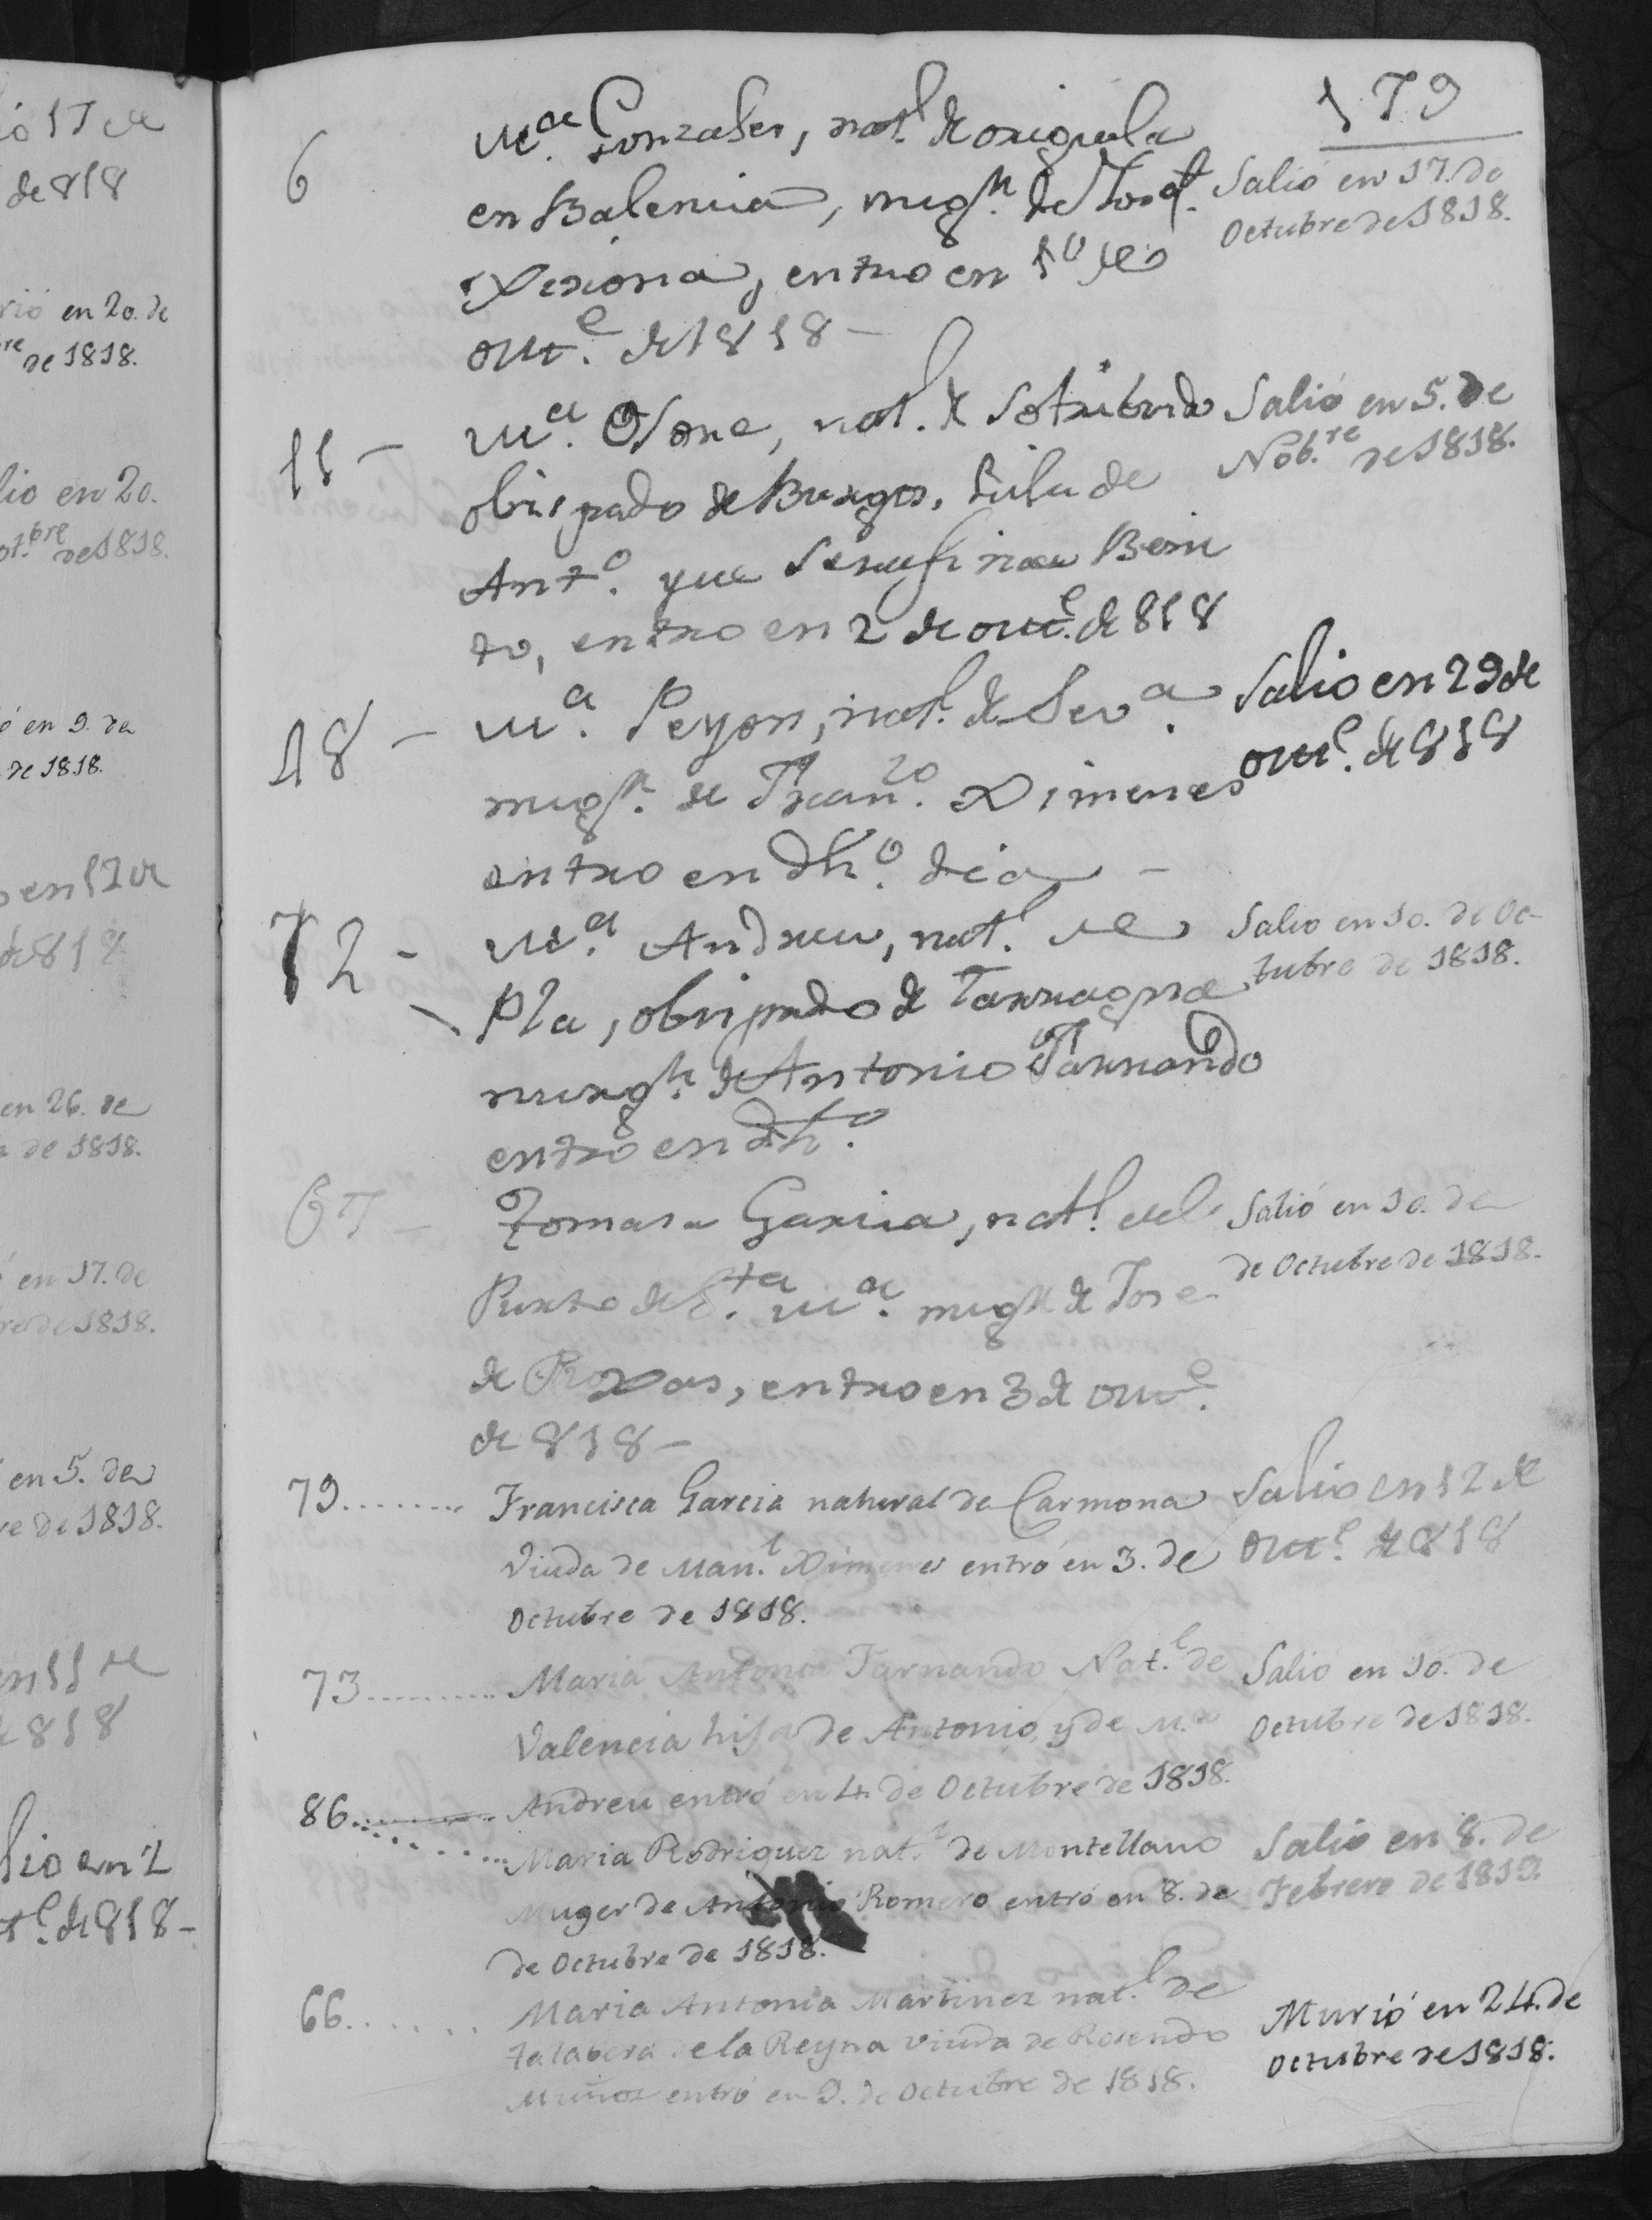 179
6
M.ª Gonzales, nat.l de origuela
en Balencia, mug.r de Josef
Xerona, entro en 1º de
Oct.e de 1818 -
Salió en 17. de
Octubre de 1818.
11 -
M.ª Osore, nat. de
obispado de Burgos,
Ant.º que Serafina Beni
to, entro en 2 de oct.e de 818
Salió en 5. de
Nob.re de 1818.
18 -
M.ª Peyon, nat.l de Sev.ª
mug.r de Fran.co Ximenes
entro en dh.º dia -
Salio en 29 de
oct.e de 818
72 -
M.ª Andreu, nat.l de
Pla, obispado de Tarragona
muxg.r de Antonio Tarnando
entro en dh.º
Salió en 10. de Oc-
tubre de 1818.
67 -
Tomasa Garcia, nat.l del
Puerto de S.ta M.ª mug.r de Jose
de Roxas, entro en 3 de oct.e
de 818 -
Salió en 10. de
de Octubre de 1818.
79........
Francisca Garcia natural de Carmona
Viuda de Man.l Ximenes entró en 3. de
Octubre de 1818.
Salio en 12 de
Oct.e de 818
73.........
Maria Antonia Tarnando Nat.l de
Valencia hija de Antonio, y de M.ª
Andreu entró en 4. de Octubre de 1818.
Salió en 10. de
Octubre de 1818.
86.........
Maria Rodriguez nat.l de Montellano
Muger de Antonio Romero entró en 8. de
de Octubre de 1818.
Salió en 8. de
Febrero de 1819.
66.......
Maria Antonia Martinez nat.l de
Talabera de la Reyna viuda de Rosendo
Muñoz entró en 9. de Octubre de 1818.
Murió en 24. de
Octubre de 1818.